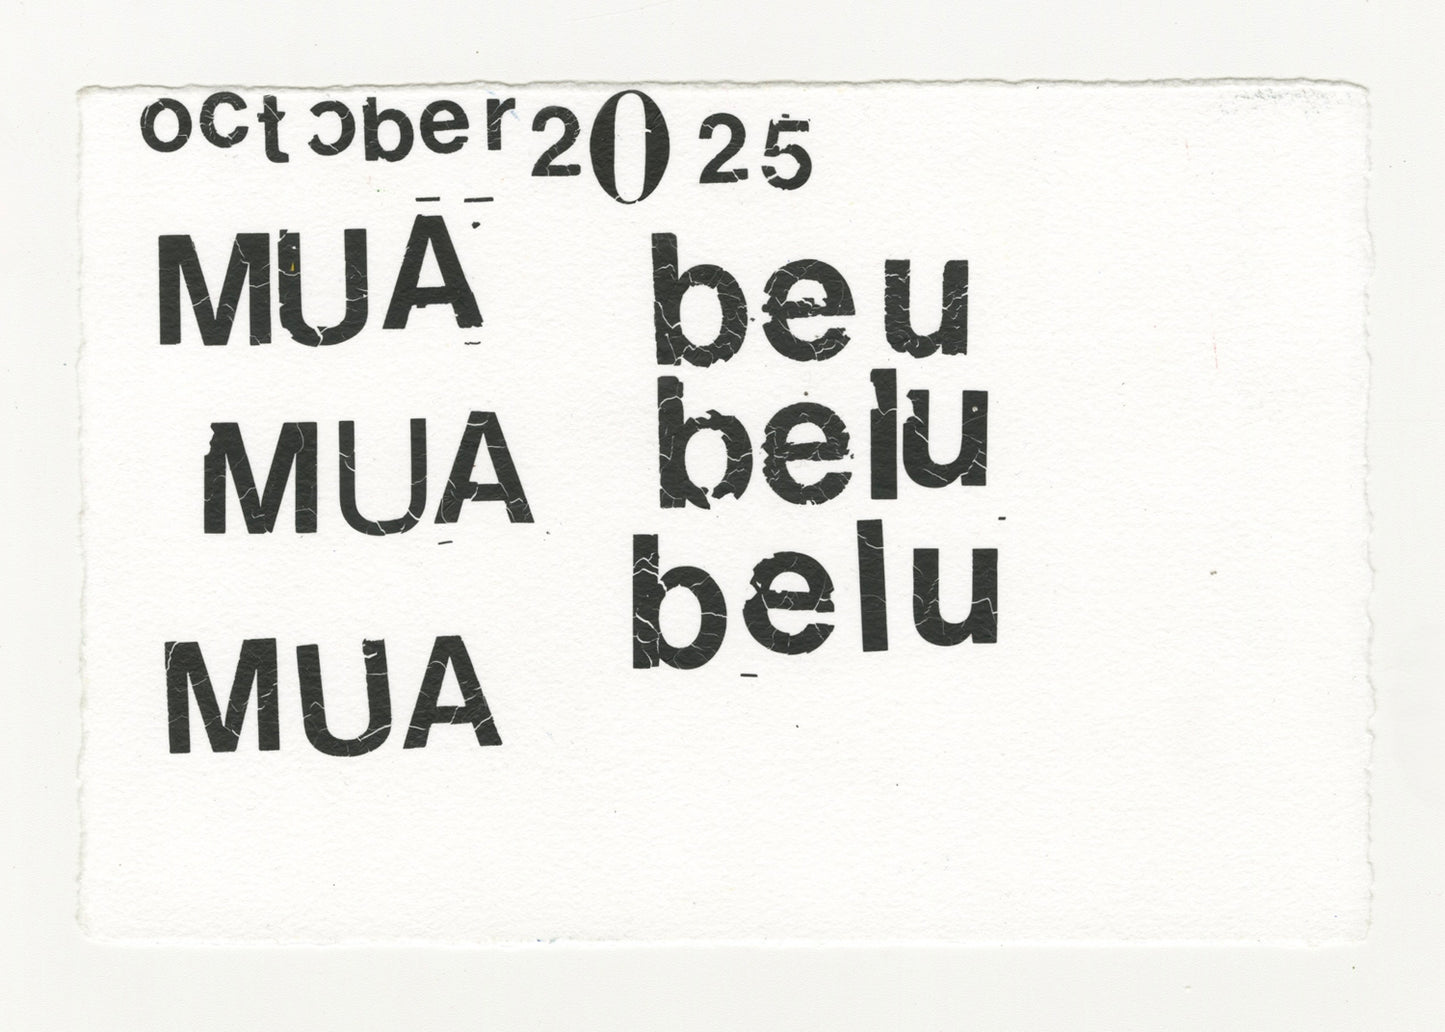 octɔber 2025
MUA beu
belu
MUA
belu
MUA